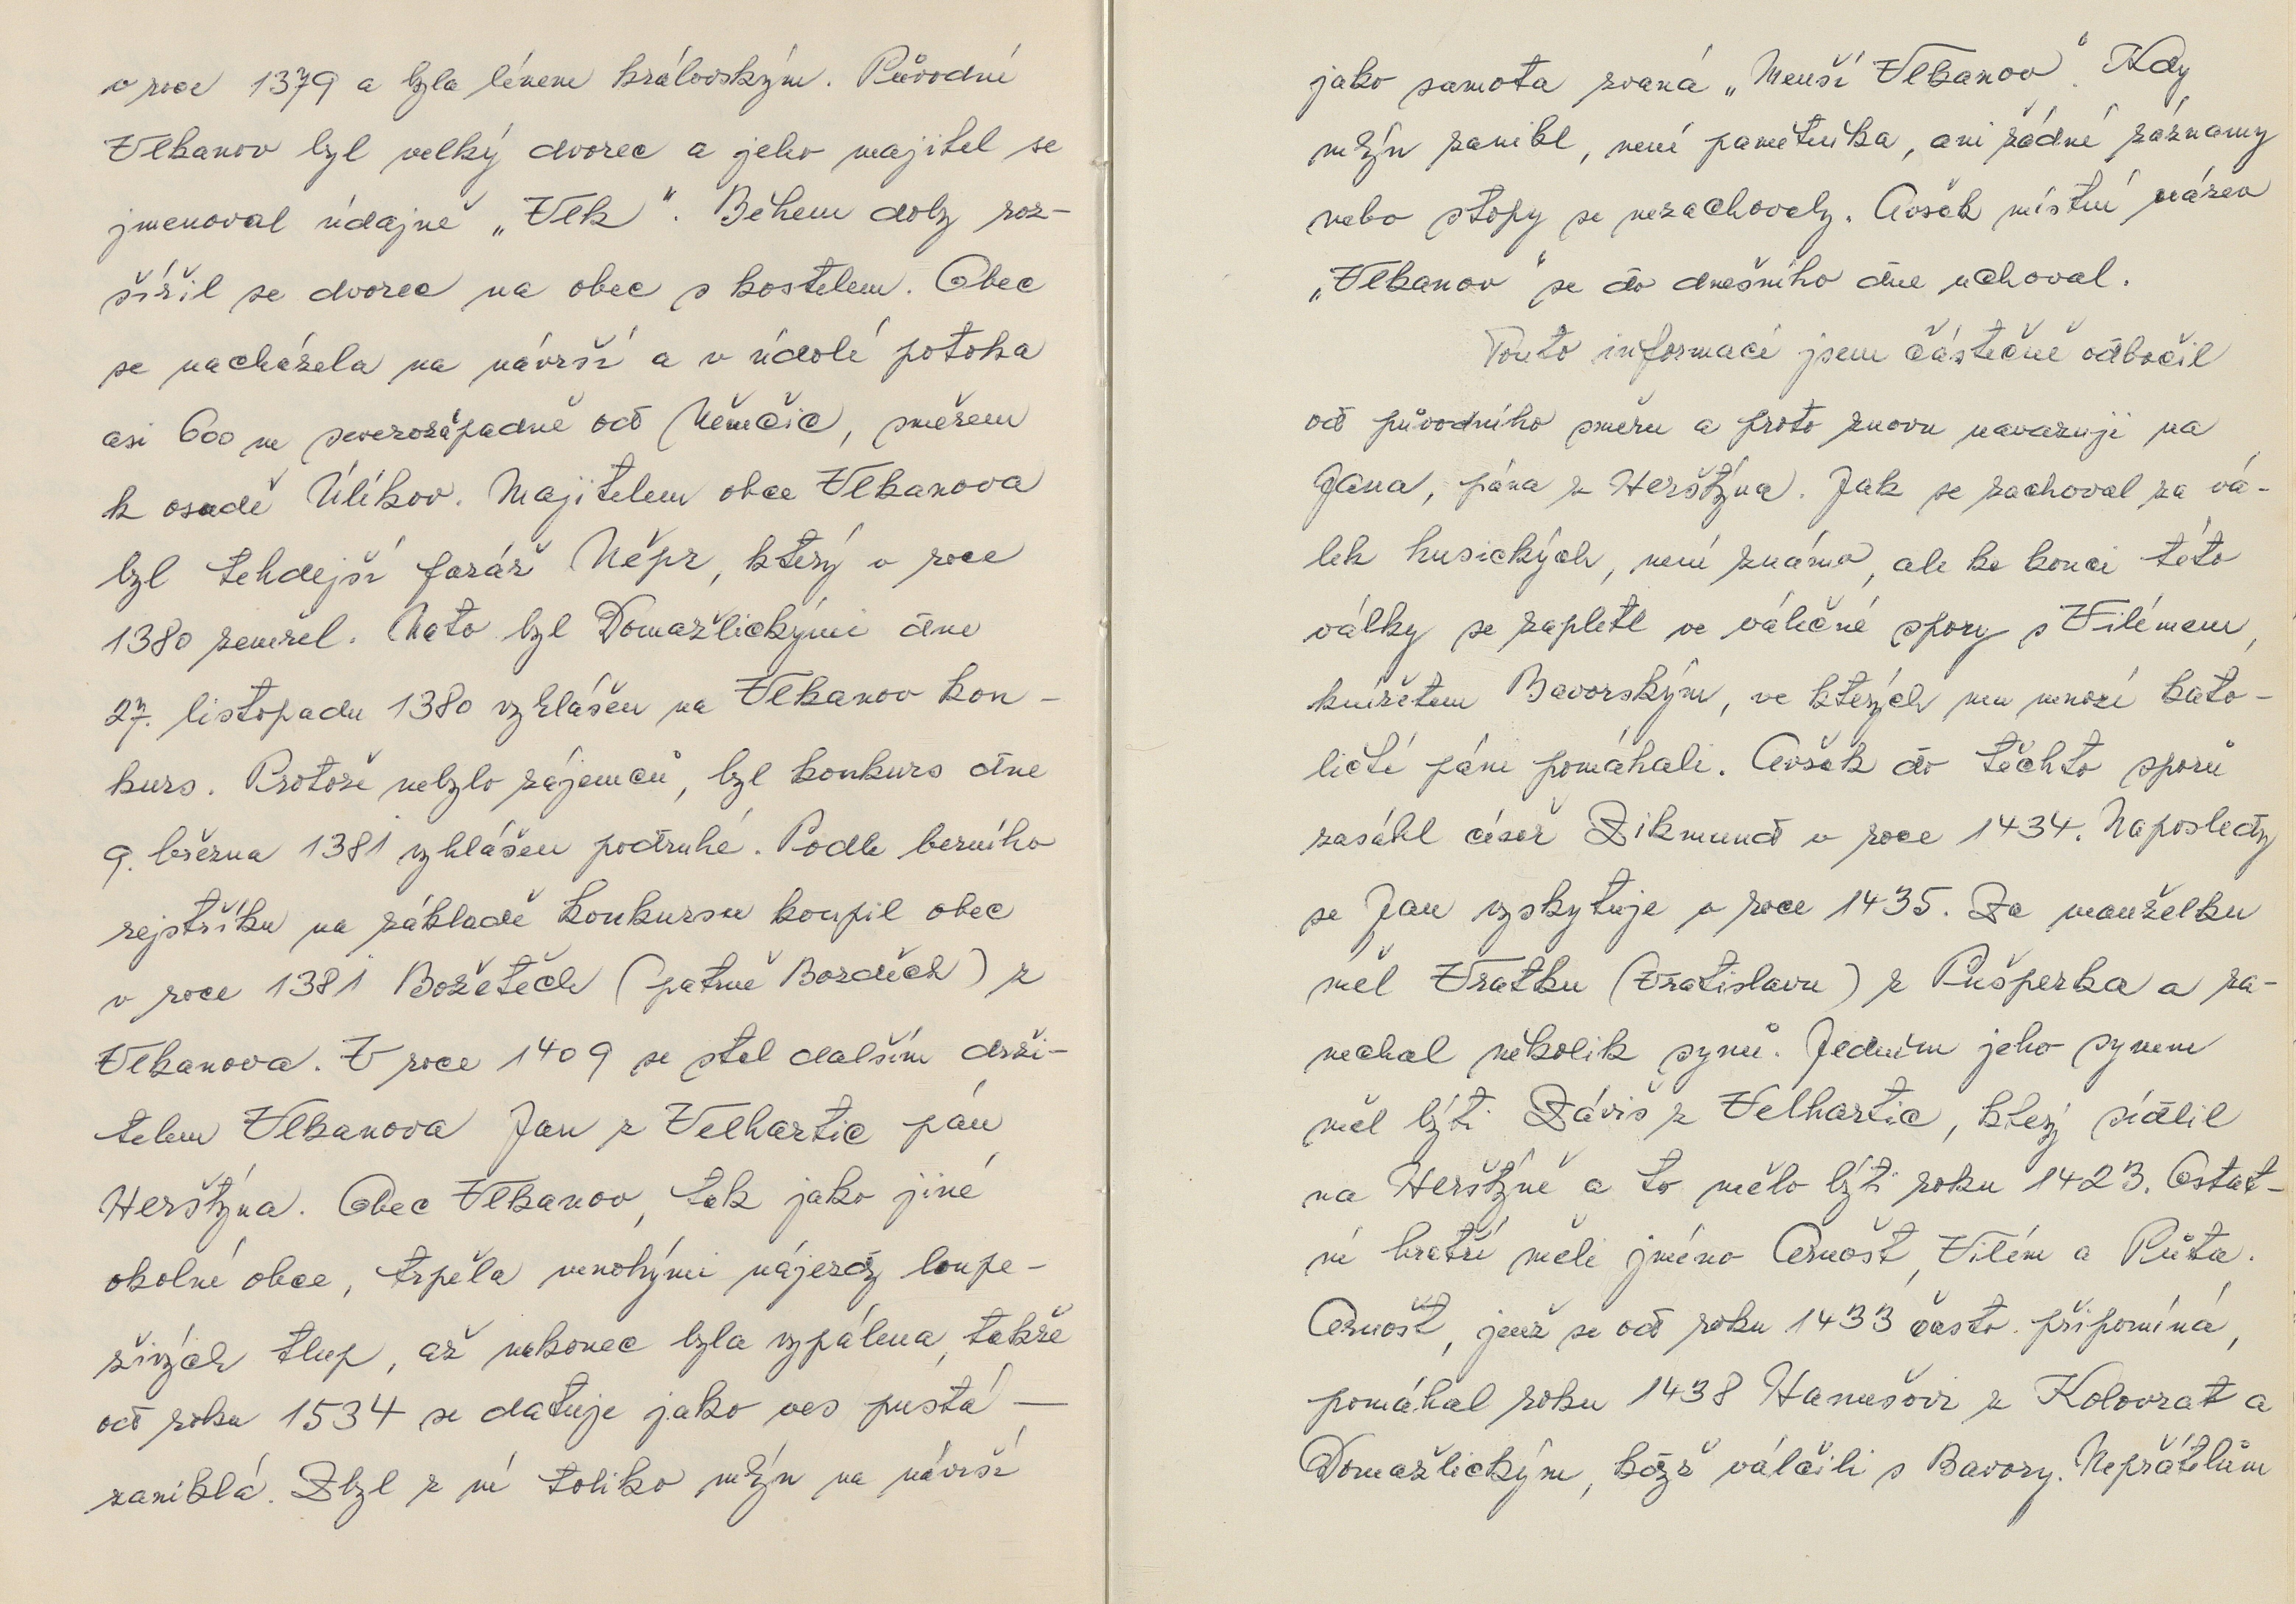 v roce 1379 a byla lénem královským. Původní
Vlkanov byl velký dvorec a jeho majitel se
jmenoval údajně „Vlk“. Během doby roz-
šířil se dvorec na obec s kostelem. Obec
se nacházela na návrší a v údolí potoka
asi 600 m severozápadně od Němčic, směrem
k osadě Úlíkov. Majitelem obce Vlkanova
byl tehdejší farář Něpr, který v roce
1380 zemřel. Nato byl Domažlickými dne
27. listopadu 1380 vyhlášen na Vlkanov kon-
kurs. Protože nebylo zájemců, byl konkurs dne
9. března 1381 vyhlášen podruhé. Podle berního
rejstříku na základě konkursu koupil obec
v roce 1381 Božetěch (patrně Bozděch) z
Vlkanova. V roce 1409 se stal dalším drži-
telem Vlkanova Jan z Velhartic pán
Herštýna. Obec Vlkanov, tak jako jiné
okolní obce, trpěla mnohými nájezdy loupe-
živých tlup, až nakonec byla vypálena, takže
od roku 1534 se datuje jako ves pustá —
zaniklá. Zbyl z ní toliko mlýn na návrší
jako samota zvaná „Menší Vlkanov“. Kdy
mlýn zanikl, není pamětníka, ani žádné záznamy
nebo stopy se nezachovaly. Avšak místní název
„Vlkanov“ se do dnešního dne uchoval.
Touto informací jsem částečně odbočil
od původního směru a proto znovu navazuji na
Jana, pána z Herštýna. Jak se zachoval za vá-
lek husických, není známo, ale ke konci této
války se zapletl ve válečné spory s Vilémem,
knížetem Bavorským, ve kterých mu mnozí kato-
ličtí páni pomáhali. Avšak do těchto sporů
zasáhl císař Zikmund v roce 1434. Naposledy
se Jan vyskytuje v roce 1435. Za manželku
měl Vratku (Vratislavu) z Pušperka a za-
nechal několik synů. Jedním jeho synem
měl býti Záviš z Velhartic, který sídlil
na Herštýně a to mělo býti roku 1423. Ostat-
ní bratři měli jméno Arnošt, Vilém a Půta.
Arnošt, jenž se od roku 1433 často připomíná,
pomáhal roku 1438 Hanušovi z Kolovrat a
Domažlickým, když válčili s Bavory. Nepřátelům